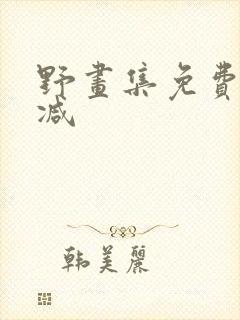 野畫集免費
减
韩美麗